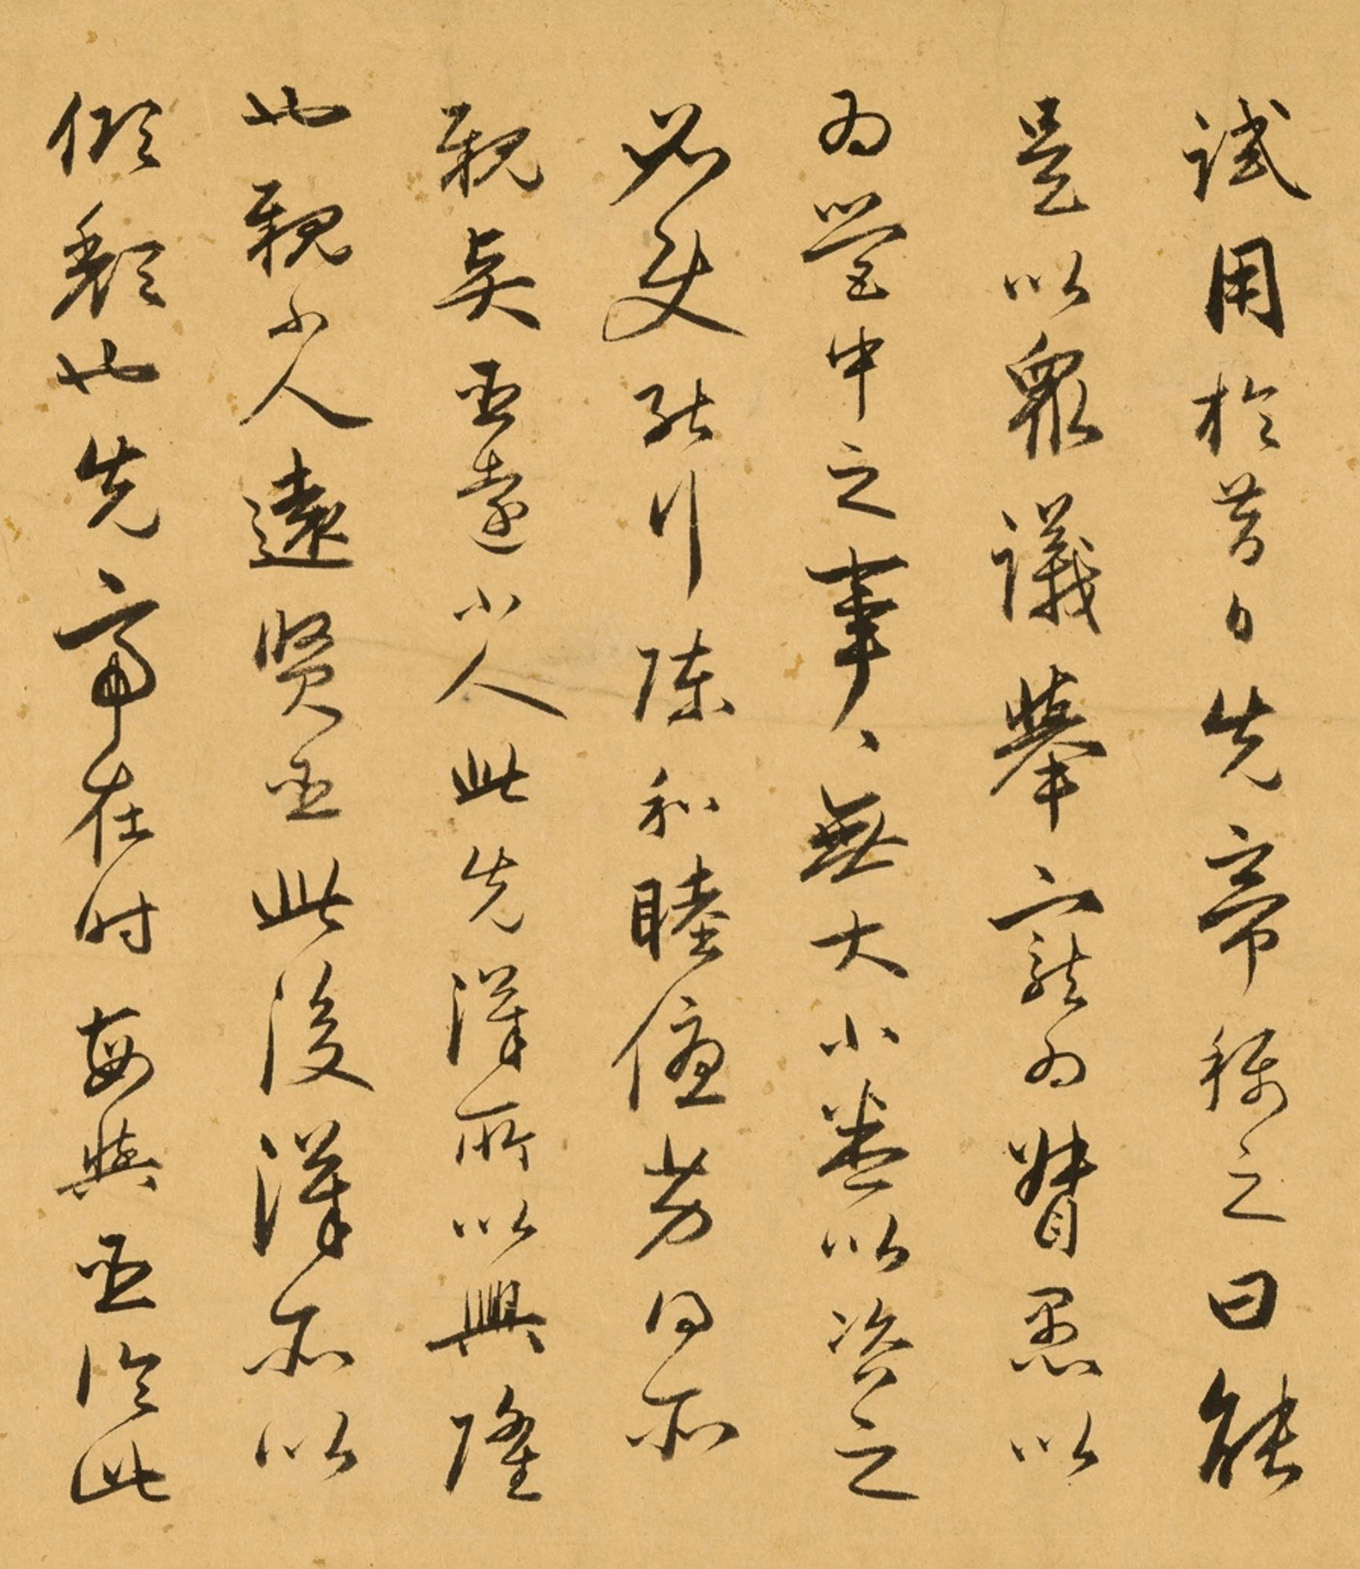 試用於昔日先帝稱之曰能
是以眾議舉寵為督愚以
為營中之事〻無大小悉以咨之
必使能行陳和睦優劣得所
親賢臣遠小人此先漢所以興隆
也親小人遠賢臣此後漢所以
傾頹也先帝在时每與臣論此